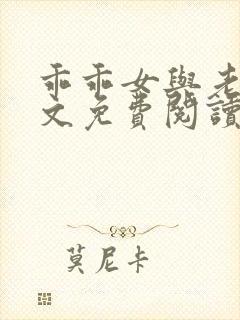 乖乖女與老
文免費閱讀
莫尼卡